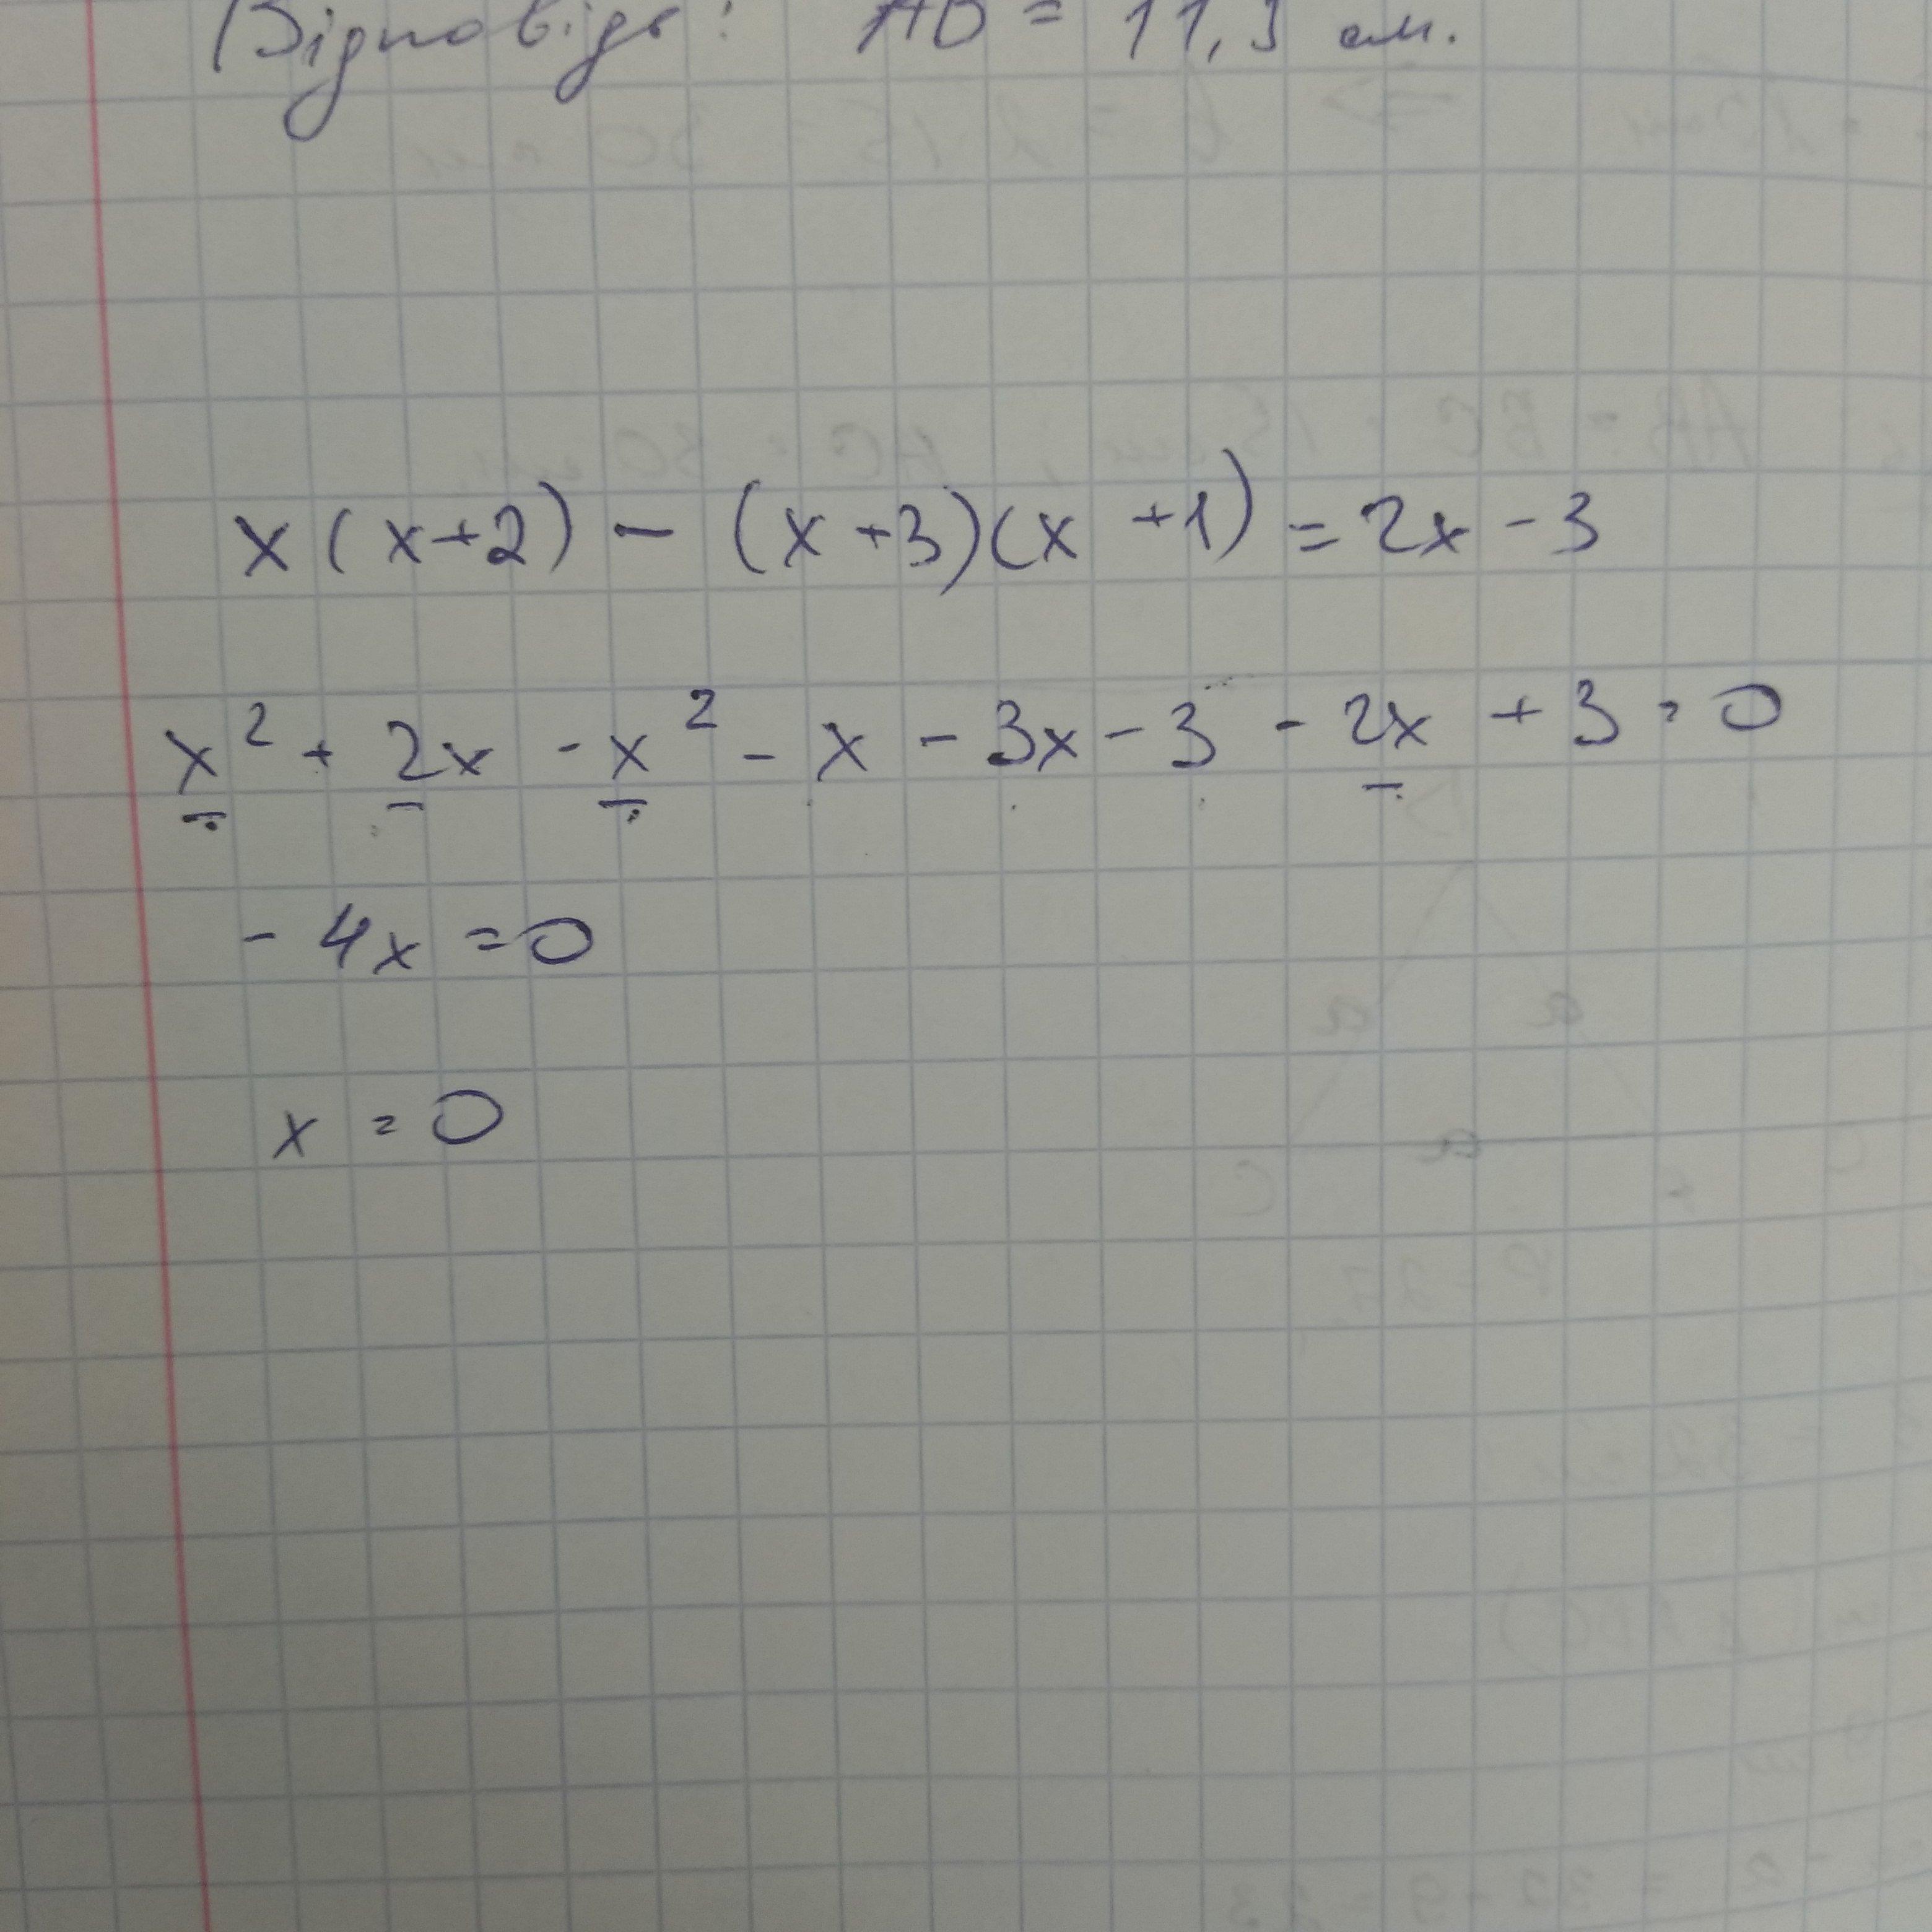 Відповідь: AB = 11,3 см.
x(x+2) - (x+3)(x+1) = 2x - 3
x² + 2x - x² - x - 3x - 3 - 2x + 3 = 0
- 4x = 0
x = 0